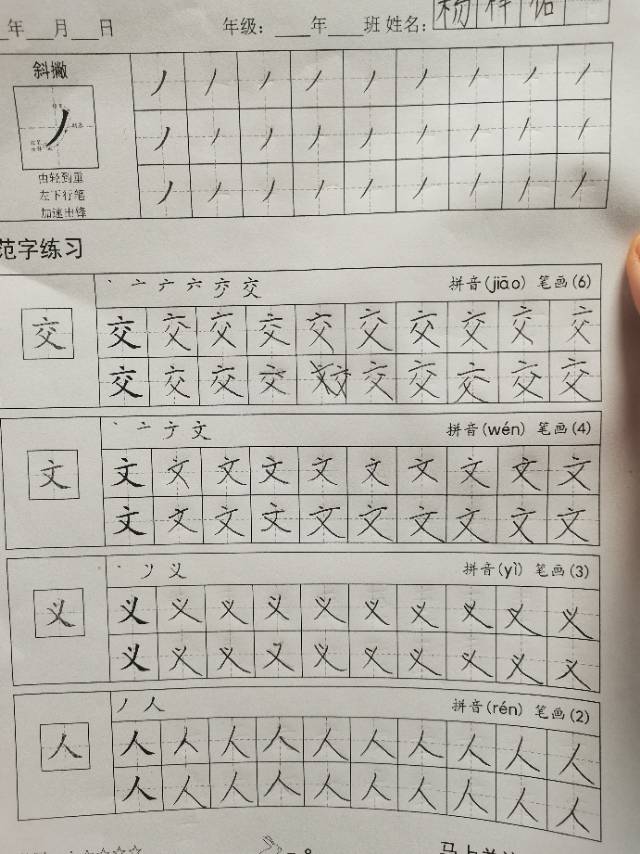 年___月___日 年级：____年____班 姓名：杨梓佑
斜撇
丿 丿 丿 丿 丿 丿 丿 丿 丿
丿 丿 丿 丿 丿 丿 丿 丿 丿
丿 丿 丿 丿 丿 丿 丿 丿 丿
由轻到重
左下行笔
加速出锋
范字练习
交 拼音(jiāo) 笔画(6)
交
交 交 交 交 交 交 交 交 交 交
交 交 交 交 交 交 交 交 交
文 拼音(wén) 笔画(4)
文
文 文 文 文 文 文 文 文 文 文
文 文 文 文 文 文 文 文 文 文
义 拼音(yì) 笔画(3)
义
义 义 义 义 义 义 义 义 义 义
义 义 义 义 义 义 义 义 义 义
丿 人 拼音(rén) 笔画(2)
人
人 人 人 人 人 人 人 人 人 人
人 人 人 人 人 人 人 人 人 人